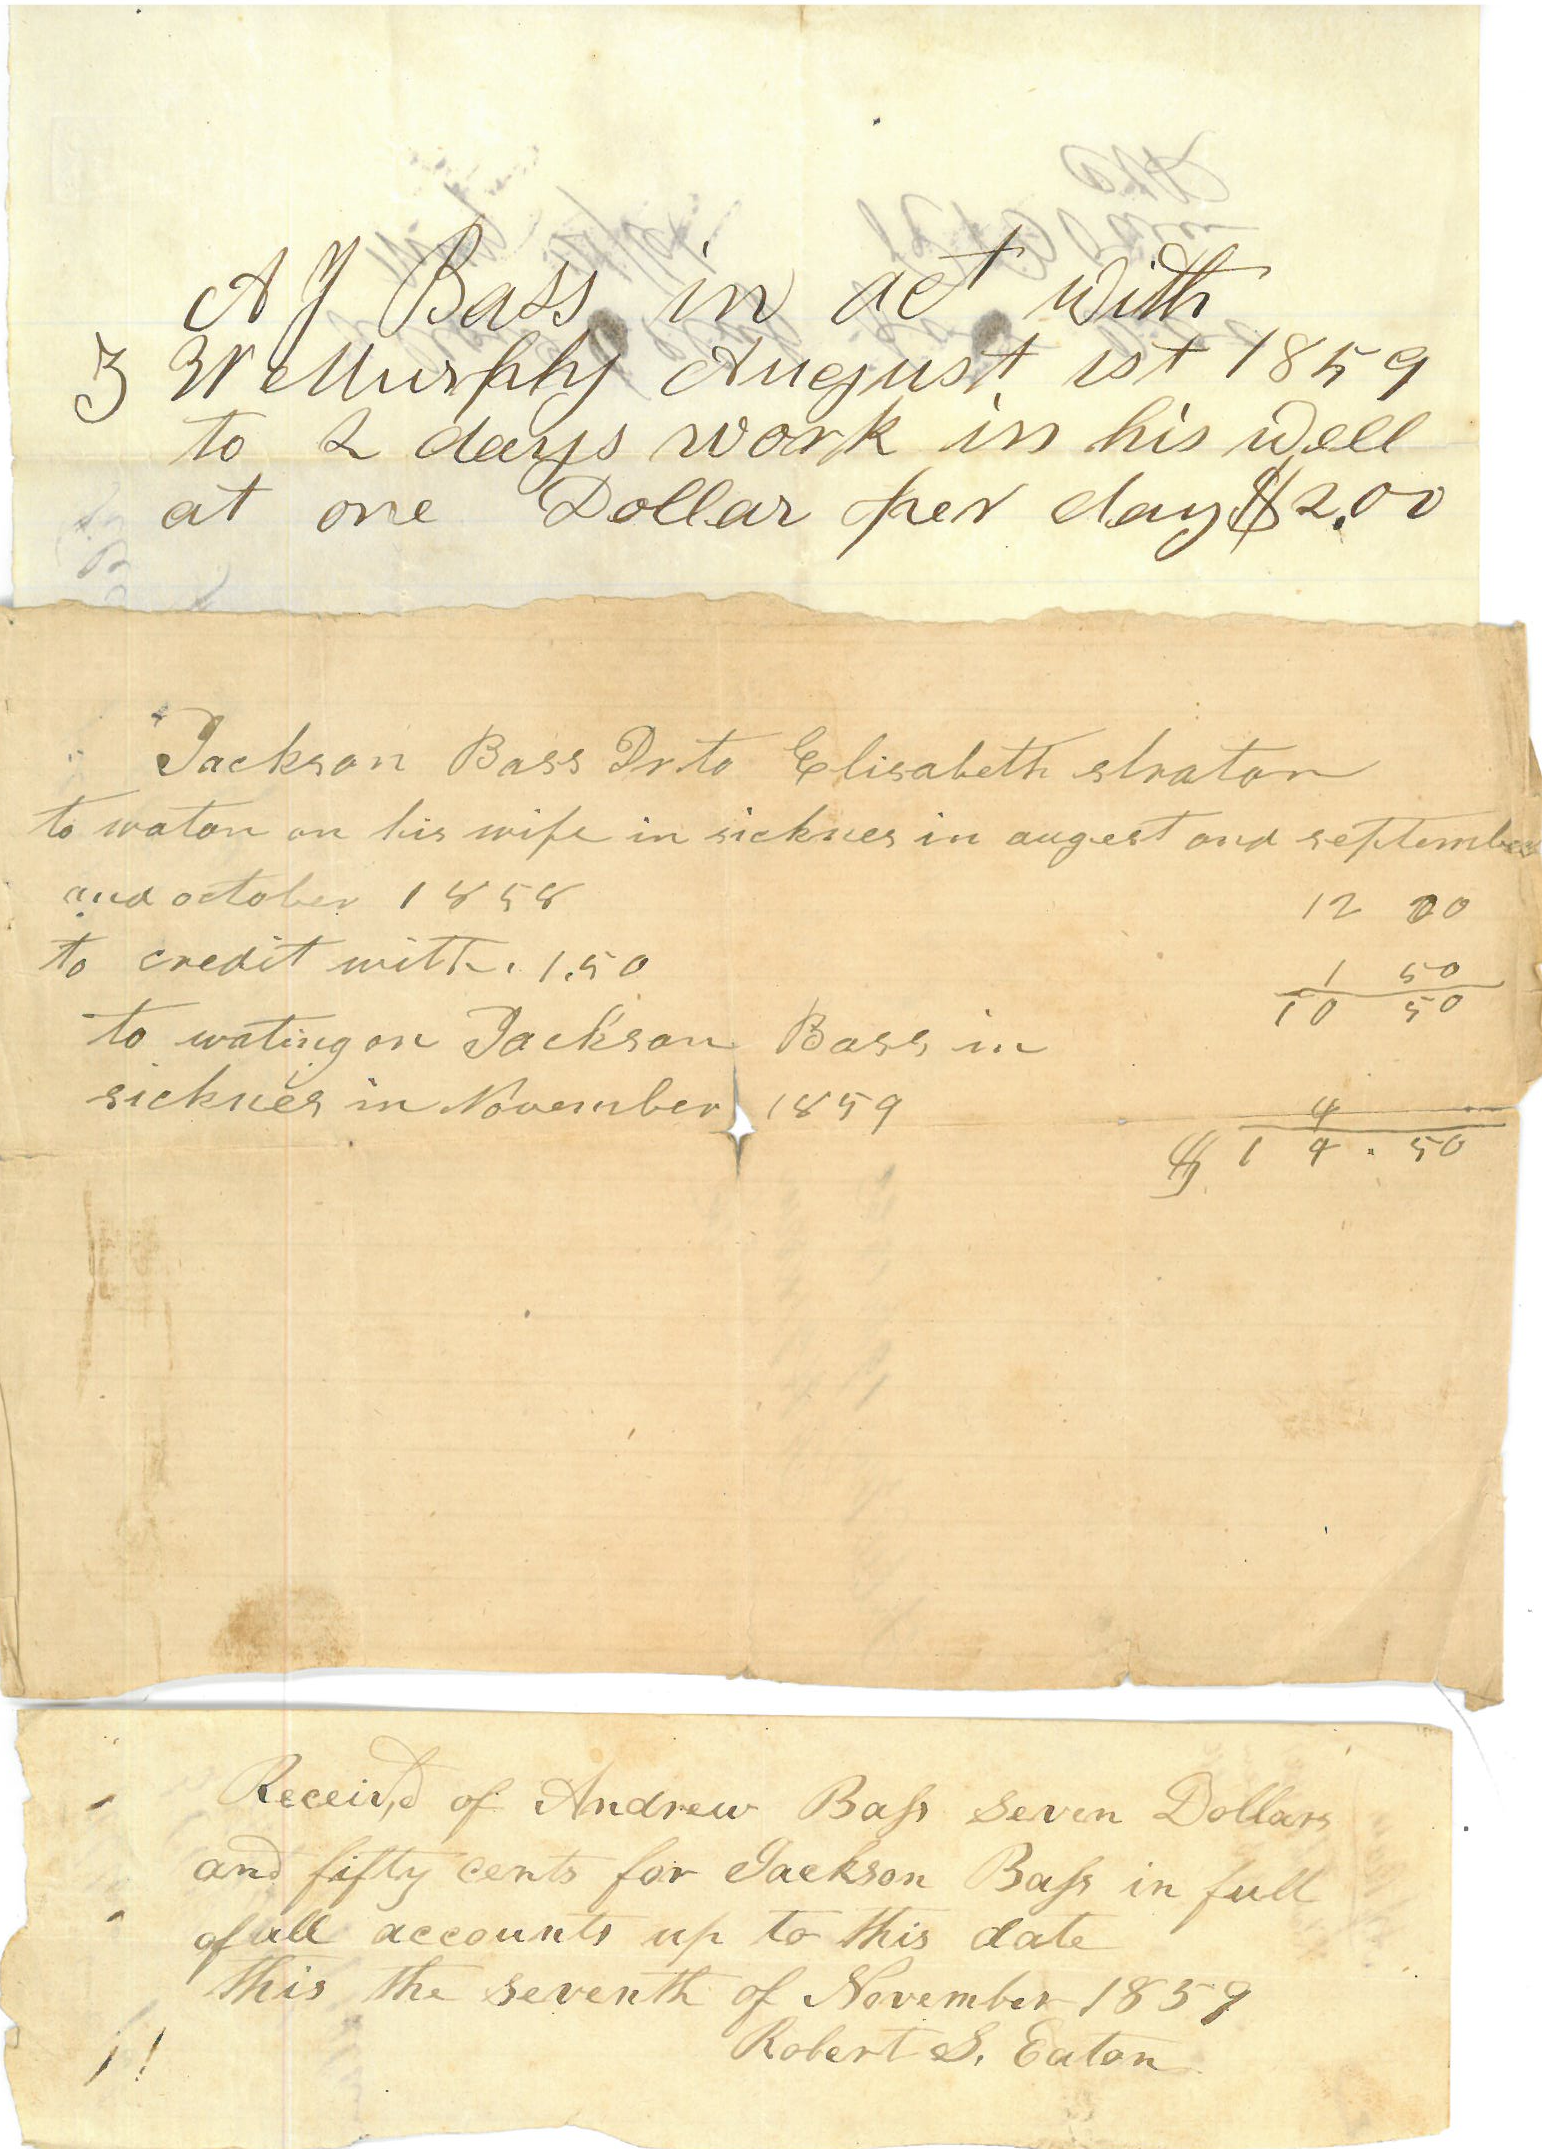 A J Bass in act with
Z W Murphy August 1st 1859
to 2 days work in his well
at one Dollar per day $2.00
Jackson Bass Dr to Elisabeth straton
to waton on his wife in sicknes in augest and september
and october 1858 12 00
to credit with. 1.50 1 50
10 50
to wating on Jackson Bass in
sicknes in November 1859 4
$ 14.50
Receiv,d of Andrew Bass Seven Dollars
and fifty cents for Jackson Bass in full
of all accounts up to this date
this the seventh of November 1859
Robert S. Eaton